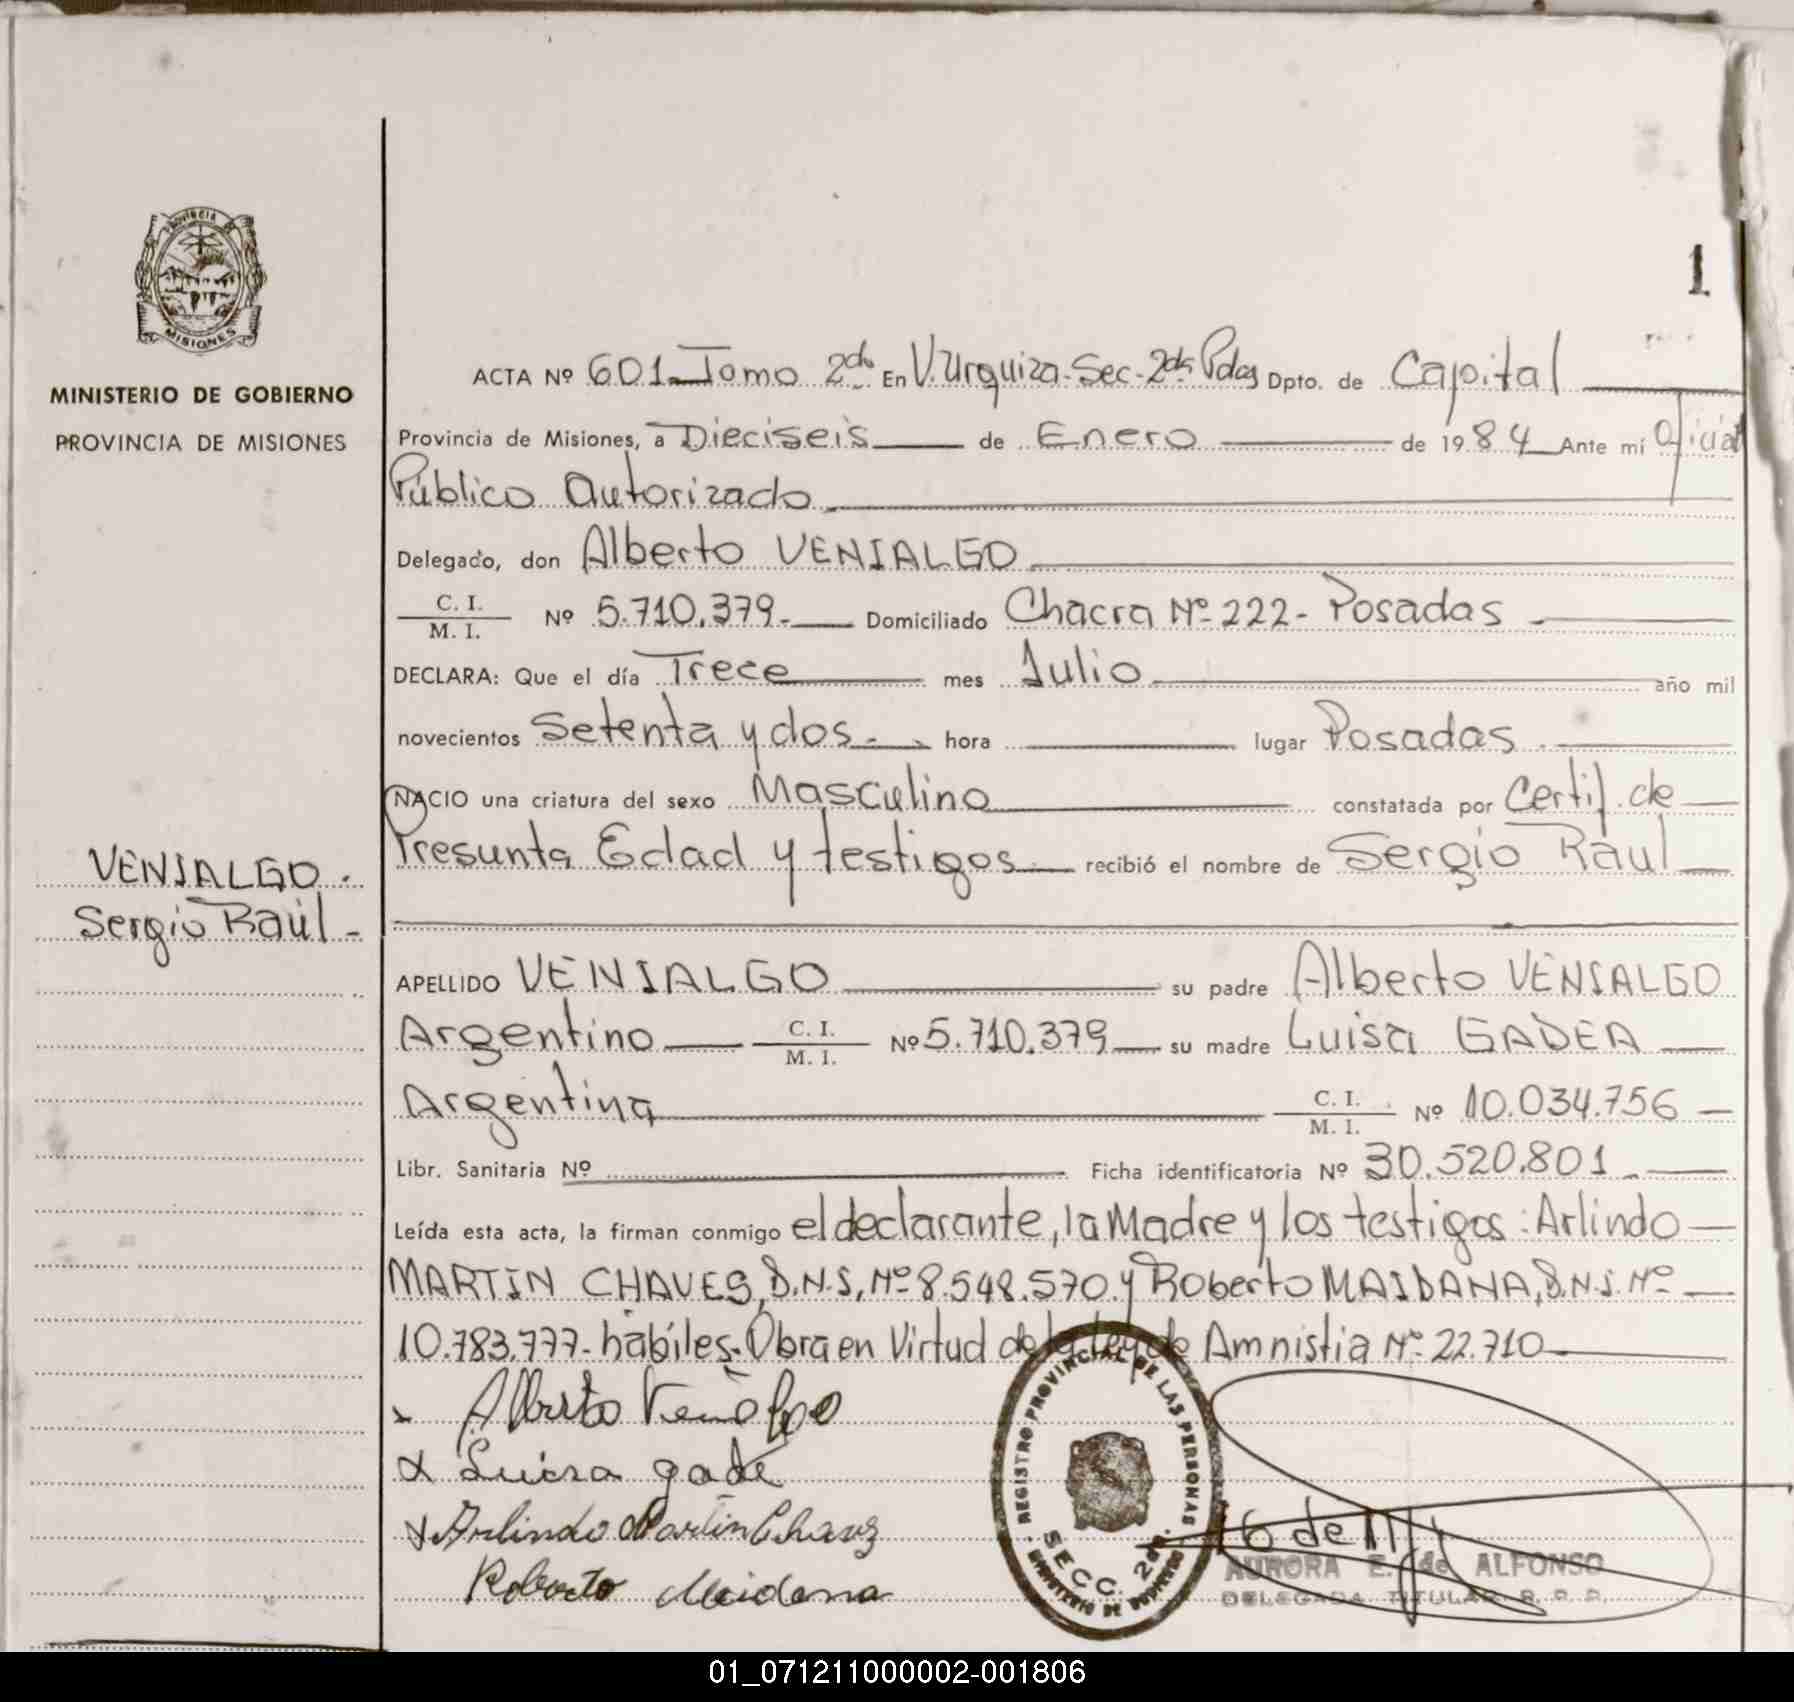 PROVINCIA
MISIONES
MINISTERIO DE GOBIERNO
PROVINCIA DE MISIONES
VENIALGO.
Sergio Raúl -
1
ACTA Nº 601 Tomo 2do En V. Urquiza - Sec - 2da Pdas Dpto. de Capital
Provincia de Misiones, a Dieciseis de Enero de 1984 Ante mí Oficial
Público Autorizado
Delegado, don Alberto VENIALGO
C. I. / M. I. Nº 5.710.379.- Domiciliado Chacra Nº 222 - Posadas
DECLARA: Que el día Trece mes Julio año mil
novecientos Setenta y dos.- hora lugar Posadas
NACIO una criatura del sexo Masculino constatada por Certif. de
Presunta Edad y testigos recibió el nombre de Sergio Raul
APELLIDO VENIALGO su padre Alberto VENIALGO
Argentino C. I. / M. I. Nº 5.710.379 su madre Luisa GADEA
Argentina C. I. / M. I. Nº 10.034.756
Libr. Sanitaria Nº Ficha identificatoria Nº 30.520.801
Leída esta acta, la firman conmigo el declarante, la Madre y los testigos: Arlindo
MARTIN CHAVES, D.N.I. Nº 8.548.570. y Roberto MAIDANA, D.N.I. Nº
10.783.777- hábiles. Obra en Virtud de la Ley de Amnistia Nº 22.710
Alberto Venialgo
Luisa gade
Arlindo Martin Chavez
Roberto Maidana
REGISTRO PROVINCIAL DE LAS PERSONAS
SECC. 2da.
MINISTERIO DE GOBIERNO
16 de
AURORA E. de ALFONSO
DELEGADA TITULAR R. P. P.
01_071211000002-001806